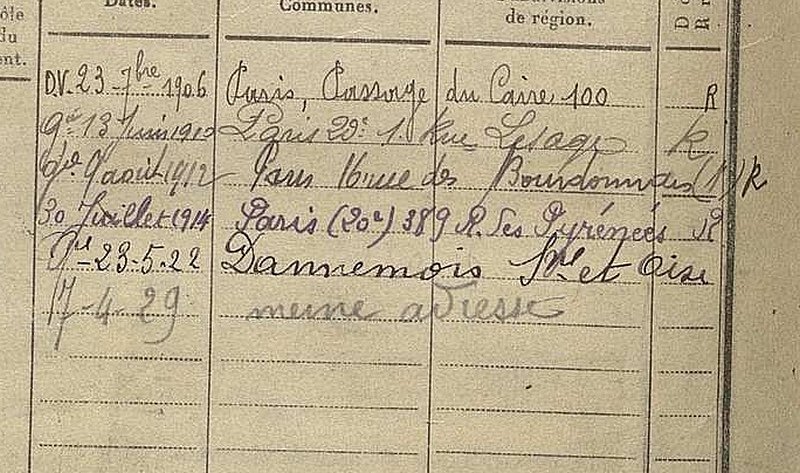 ôle Dates. Communes. Subdivisions D R
du de région.
ent.
D.V. 23-7bre 1906 Paris, Passage du Caire 100 R
13 Juin 1910 Paris 20e 1 Rue Lesage R
9 août 1912 Paris 16 rue des Bourdonnais (1) R
30 Juillet 1914 Paris (20e) 389 R. des Pyrénées R
23-5-22 Dannemois Sne et Oise
17-4-29 meme adresse